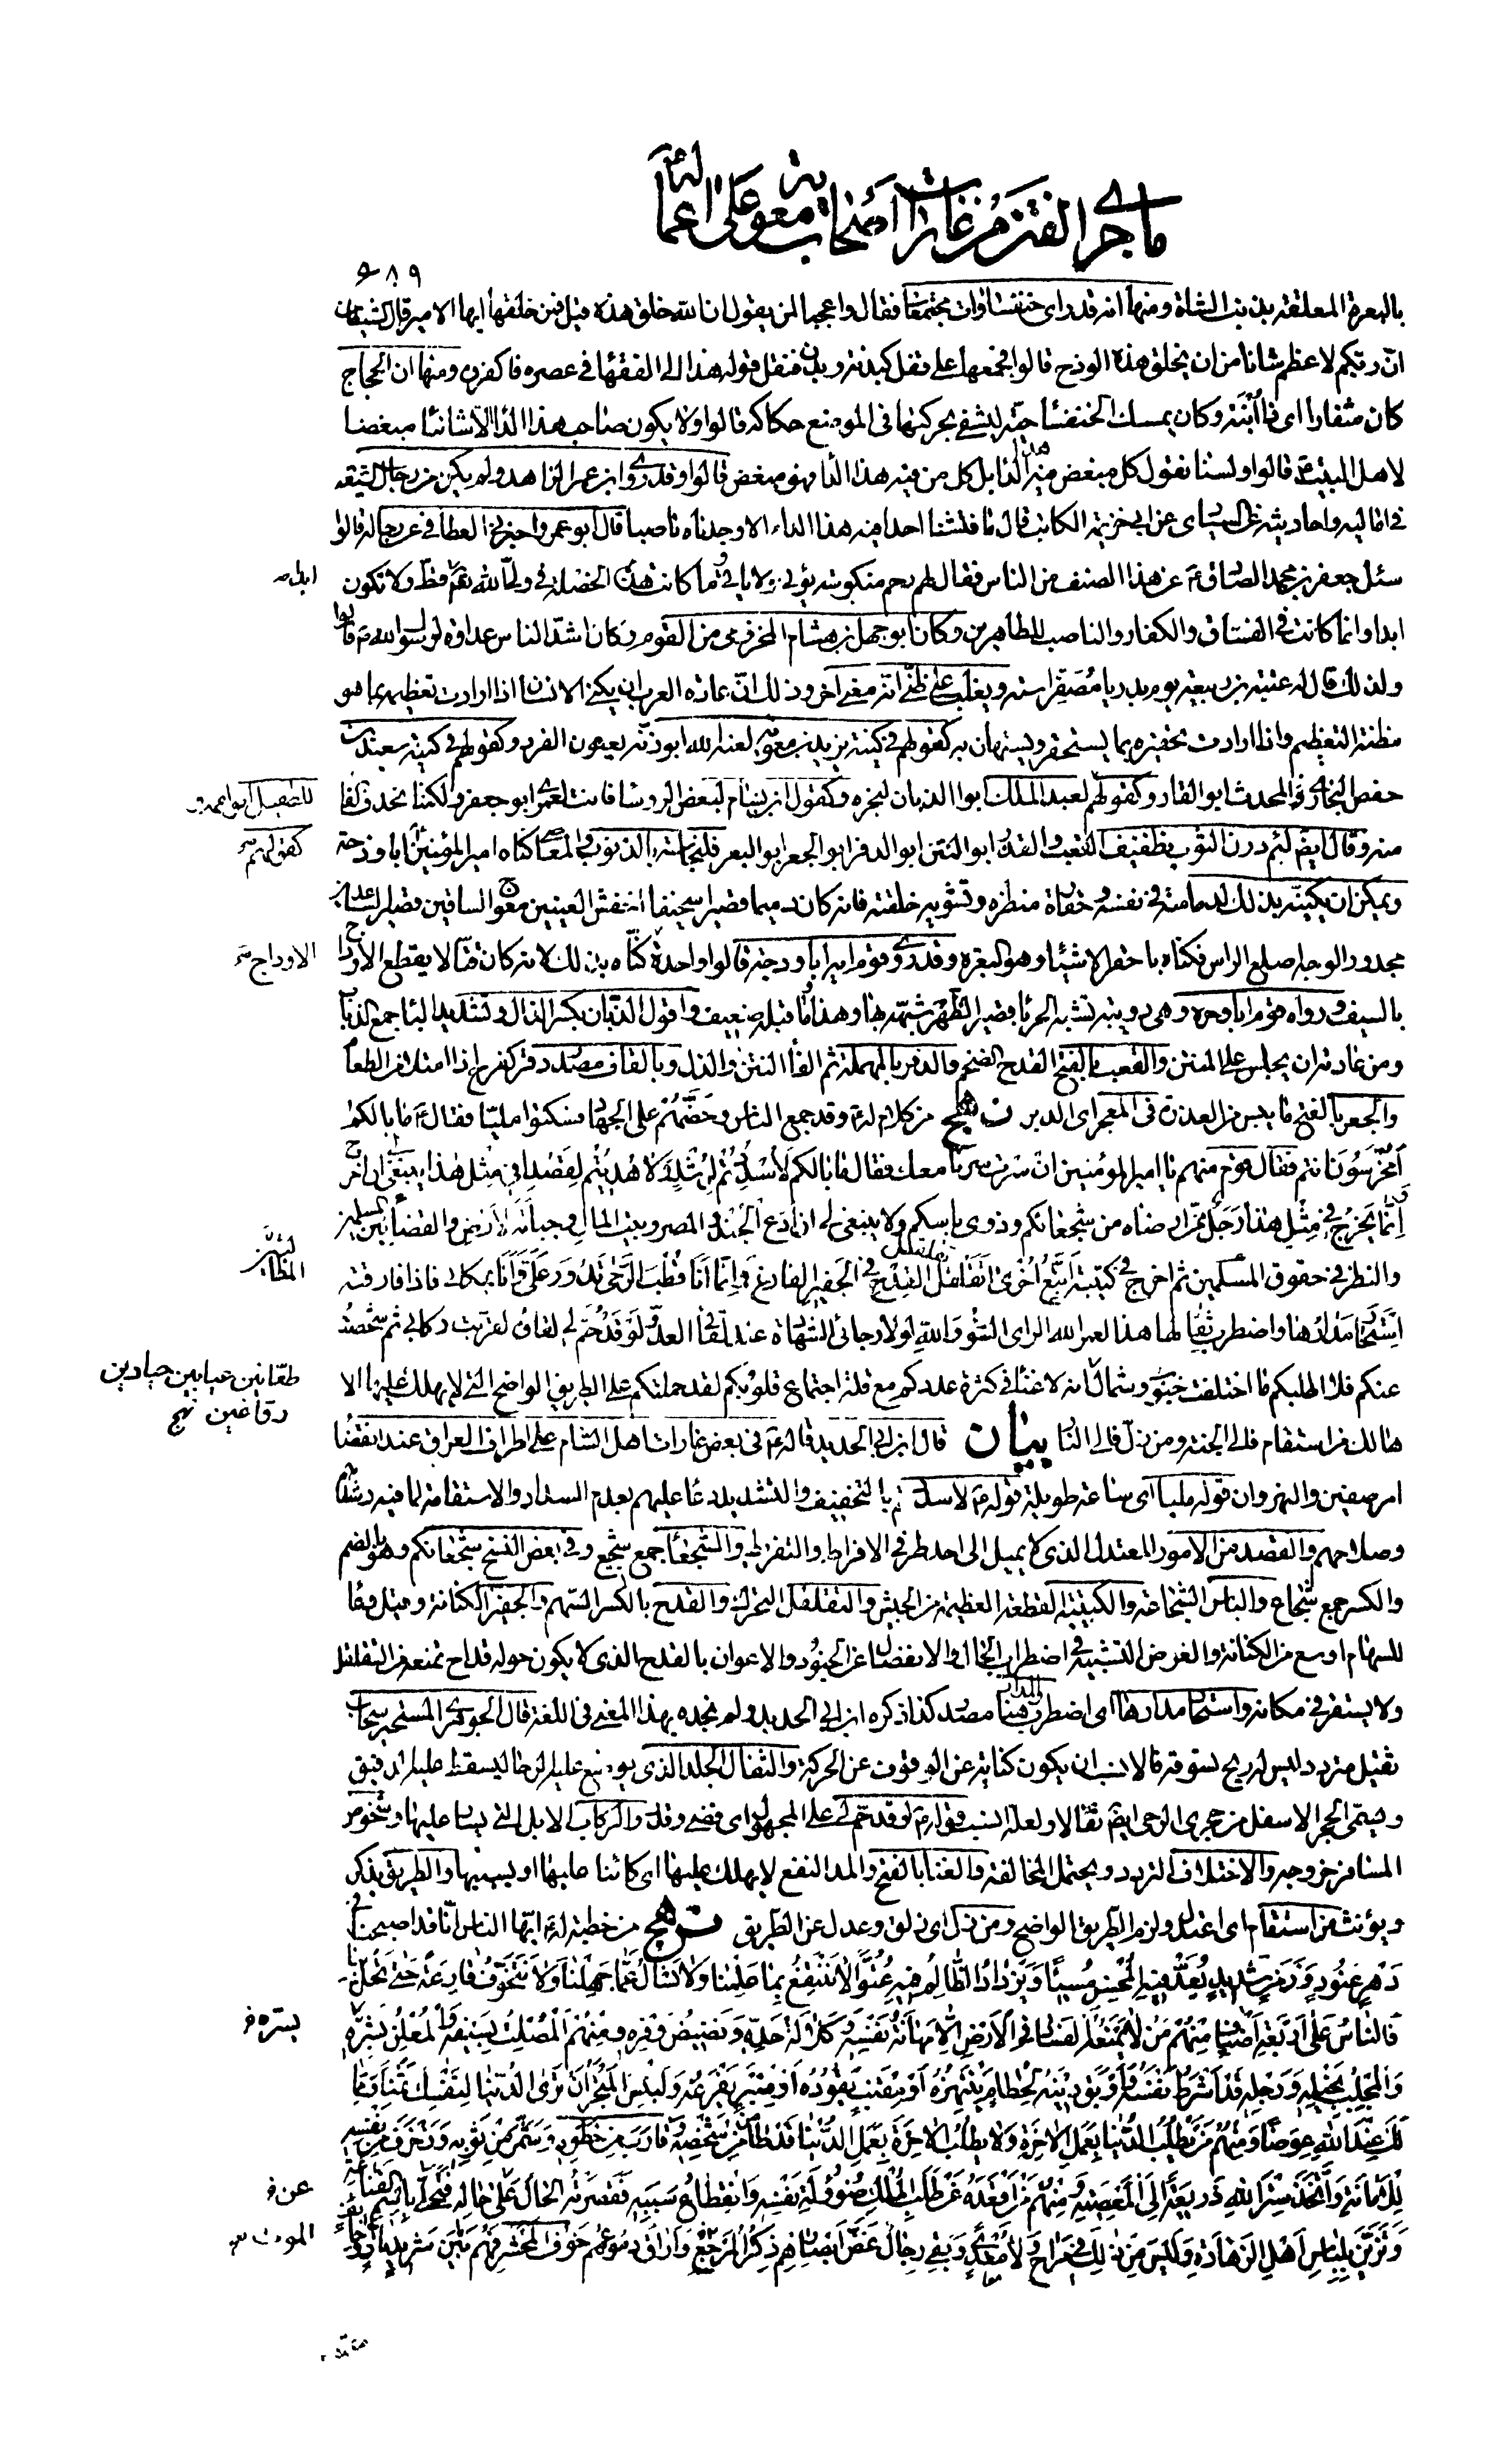 ما جرى الفتن من غارات أصحاب معوية على اعماله ع
٦٨٩
بالبعرة المعلقة بذنب الشاة ومنها انه قد راى خنفساوات مجتمعات فقال واعجبا لمن يقول ان الله خلق هذه قيل فمن خلقها ايها الامير قال الشيطان
ان ربكم لاعظم شانا من ان يخلق هذه الوذح قالوا فجمعها على فعل كبدنة وبدن فنقل قوله هذا الى الفقهاء في عصره فاكفروه ومنها ان الحجاج
كان مثفارا اى ذا ابنة وكان يمسك الخنفساء حية ليشفى بحركتها فى الموضع حكاكه قالوا ولا يكون صاحب هذا الداء الا شانئا مبغضا
لاهل البيت ع قالوا ولسنا نقول كل مبغض فيه هذا الداء بل كل من فيه هذا الداء فهو مبغض قالوا وقد روى ابو عمر الزاهد ولم يكن من رجال الشيعة
فى اماليه واحاديثه عن السيارى عن ابى خزيمة الكاتب قال ما فتشنا احدا فيه هذا الداء الا وجدناه ناصبيا قال ابو عمر واخبرنى العطافى عن رجاله قالوا
سئل جعفر بن محمد الصادق ع عن هذا الصنف من الناس فقال لهم رحم منكوسة يؤتى ولا ياتى وما كانت هذه الخصلة فى ولى الله تعالى قط ولا تكون
ابدا وانما كانت فى الفساق والكفار والناصب للطاهرين وكان ابو جهل بن هشام المخزومى من القوم وكان اشد الناس عداوة لرسول الله ص قالوا
ولذلك قال له عتبة بن ربيعة يوم بدر يا مصفر استه ويغلب على ظنى انه معنى اخر وذلك ان عادة العرب ان يكنى الانسان اذا ارادت تعظيمه بما هو
مظنة التعظيم واذا ارادت تحقيره بما يستحقر ويستهان به كقولهم فى كنية يزيد بن معوية لعنه الله ابو زنة يعنون القرد وكقولهم فى كنية سعيد بن
حفص البخارى المحدث ابو الفار وكقولهم لعبد الملك ابو الذبان لبخره وكقول ابن بسام لبعض الرؤسا فانت لعمرى ابو جعفر ولكننا نحذف الفا
منه وقال ايضا لئيم درن الثوب نظيف القعب والقدر ابو النتن ابو الدفر ابو الجعر ابو البعر فلنجاسته بالذنوب والمعاصى كناه امير المؤمنين ع ابا وذحة
ويمكن ان يكنيه بذلك لدمامته فى نفسه وحقارة منظره وتشويه خلقته فانه كان دميما قصيرا سخيفا اخفش العينين معوج الساقين قصير الساعدين
مجدور الوجه اصلع الراس فكناه باحقر الاشياء وهو البعرة وقد روى قوم ايه ابا ودجة قالوا واحدة كناه بذلك لانه كان قتالا يقطع الاوداج
بالسيف ورواه قوم ابا وحرة وهى دويبة تشبه الحرباء قصيرة الظهر شبهه بها وهذا وما قبله ضعيف واقول الذبان بكسر الذال وتشديد الباء جمع الذباب
ومن عادته ان يجلس على المنتن والقعب بالفتح القدح الضخم والدفر بالمهملة ثم الفاء النتن والذل وبالقاف مصدر دقر كفرح اذا امتلأ من الطعام
والجعر بالفتح ما يبس من العذرة فى المجعر اى الدبر نهج من كلام له ع وقد جمع الناس وحضهم على الجهاد فسكتوا مليا فقال ع ما بالكم
امخرسون انتم فقال قوم منهم يا امير المؤمنين ان سرت سرنا معك فقال ما بالكم لا سددتم لرشد ولا هديتم لقصد افى مثل هذا ينبغى ان اخرج
انما يخرج فى مثل هذا رجل ممن ارضاه من شجعانكم وذوى باسكم ولا ينبغى لى ان ادع الجند والمصر وبيت المال وجباية الارض والقضاء بين المسلمين
والنظر فى حقوق المسلمين ثم اخرج فى كتيبة اتبع اخرى اتقلقل تقلقل القدح فى الجفير الفارغ وانما انا قطب الرحى تدور على وانا بمكانى فاذا فارقته
استحار مدارها واضطرب ثفالها هذا لعمر الله الراى السوء والله لولا رجائى الشهادة عند لقائى العدو لو قد حم لى لقاؤه لقربت ركابى ثم شخصت
عنكم فلا اطلبكم ما اختلف جنوب وشمال انه لا غناء فى كثرة عددكم مع قلة اجتماع قلوبكم لقد حملتكم على الطريق الواضح التى لا يهلك عليها الا
هالك من استقام فالى الجنة ومن زل فالى النار بيان قال ابن ابى الحديد قاله ع فى بعض غارات اهل الشام على اطراف العراق عند انقضاء
امر صفين والنهروان قوله مليا اى ساعة طويلة قوله ع لا سددتم بالتخفيف والتشديد دعاء عليهم بعدم السداد والاستقامة لما فيه رشدهم
وصلاحهم والقصد من الامور المعتدل الذى لا يميل الى احد طرفى الافراط والتفريط والشجعاء جمع شجيع وفى بعض النسخ شجعانكم وهو بالضم
والكسر جمع شجاع والباس الشجاعة والكتيبة القطعة العظيمة من الجيش والتقلقل التحرك والقدح بالكسر السهم والجفير الكنانة وقيل وعاء
للسهام اوسع من الكنانة والغرض التشبيه فى اضطراب الحال والانفصال عن الجنود والاعوان بالقدح الذى لا يكون حوله قداح تمنعه من التقلقل
ولا يستقر فى مكانه واستحار مدارها اى اضطرب والمدار هنا مصدر كذا ذكره ابن ابى الحديد ولم نجده بهذا المعنى فى اللغة قال الجوهرى المستحير سحاب
ثقيل متردد ليس له ريح تسوقه فالانسب ان يكون كناية عن الوقوف عن الحركة والثفال الجلد الذى يوضع عليه الرحا ليسقط عليه الدقيق
ويسمى الحجر الاسفل من حجرى الرحى ايضا ثفالا ولعله انسب قوله ع لو قد حم لى على المجهول اى قضى وقدر والركاب الابل التى يسار عليها وشخوص
المسافر خروجه والاختلاف التردد ويحتمل المخالفة والغناء بالفتح والمد النفع لا يهلك عليها اى كائنا عليها او بسببها والطريق يذكر
ويؤنث من استقام اى اعتدل ولزم الطريق الواضح ومن زل اى زلق وعدل عن الطريق نهج من خطبة له ع ايها الناس انا قد اصبحنا فى
دهر عنود وزمن شديد يعد فيه المحسن مسيئا ويزداد الظالم فيه عتوا لا ننتفع بما علمنا ولا نسأل عما جهلنا ولا نتخوف قارعة حتى تحل بنا
فالناس على اربعة اصناف منهم من لا يمنعه الفساد فى الارض الا مهانة نفسه وكلالة حده ونضيض وفره ومنهم المصلت بسيفه والمعلن بشره
والمجلب بخيله ورجله قد اشرط نفسه واوبق دينه لحطام ينتهزه او مقنب يقوده او منبر يفرعه ولبئس المتجر ان ترى الدنيا لنفسك ثمنا ومما
لك عند الله عوضا ومنهم من يطلب الدنيا بعمل الاخرة ولا يطلب الاخرة بعمل الدنيا قد طامن من شخصه وقارب من خطوه وشمر من ثوبه وزخرف من نفسه
للامانة واتخذ ستر الله ذريعة الى المعصية ومنهم من اقعده عن طلب الملك ضئولة نفسه وانقطاع سببه فقصرته الحال على حاله فتحلى باسم القناعة
وتزين بلباس اهل الزهادة وليس من ذلك فى مراح ولا مغدى وبقى رجال غض ابصارهم ذكر المرجع واراق دموعهم خوف المحشر فهم بين شريد ناد
كقولهم
الاوداج
طعانين عيابين حيادين
رواغين نهج
بسره
عن
الموت